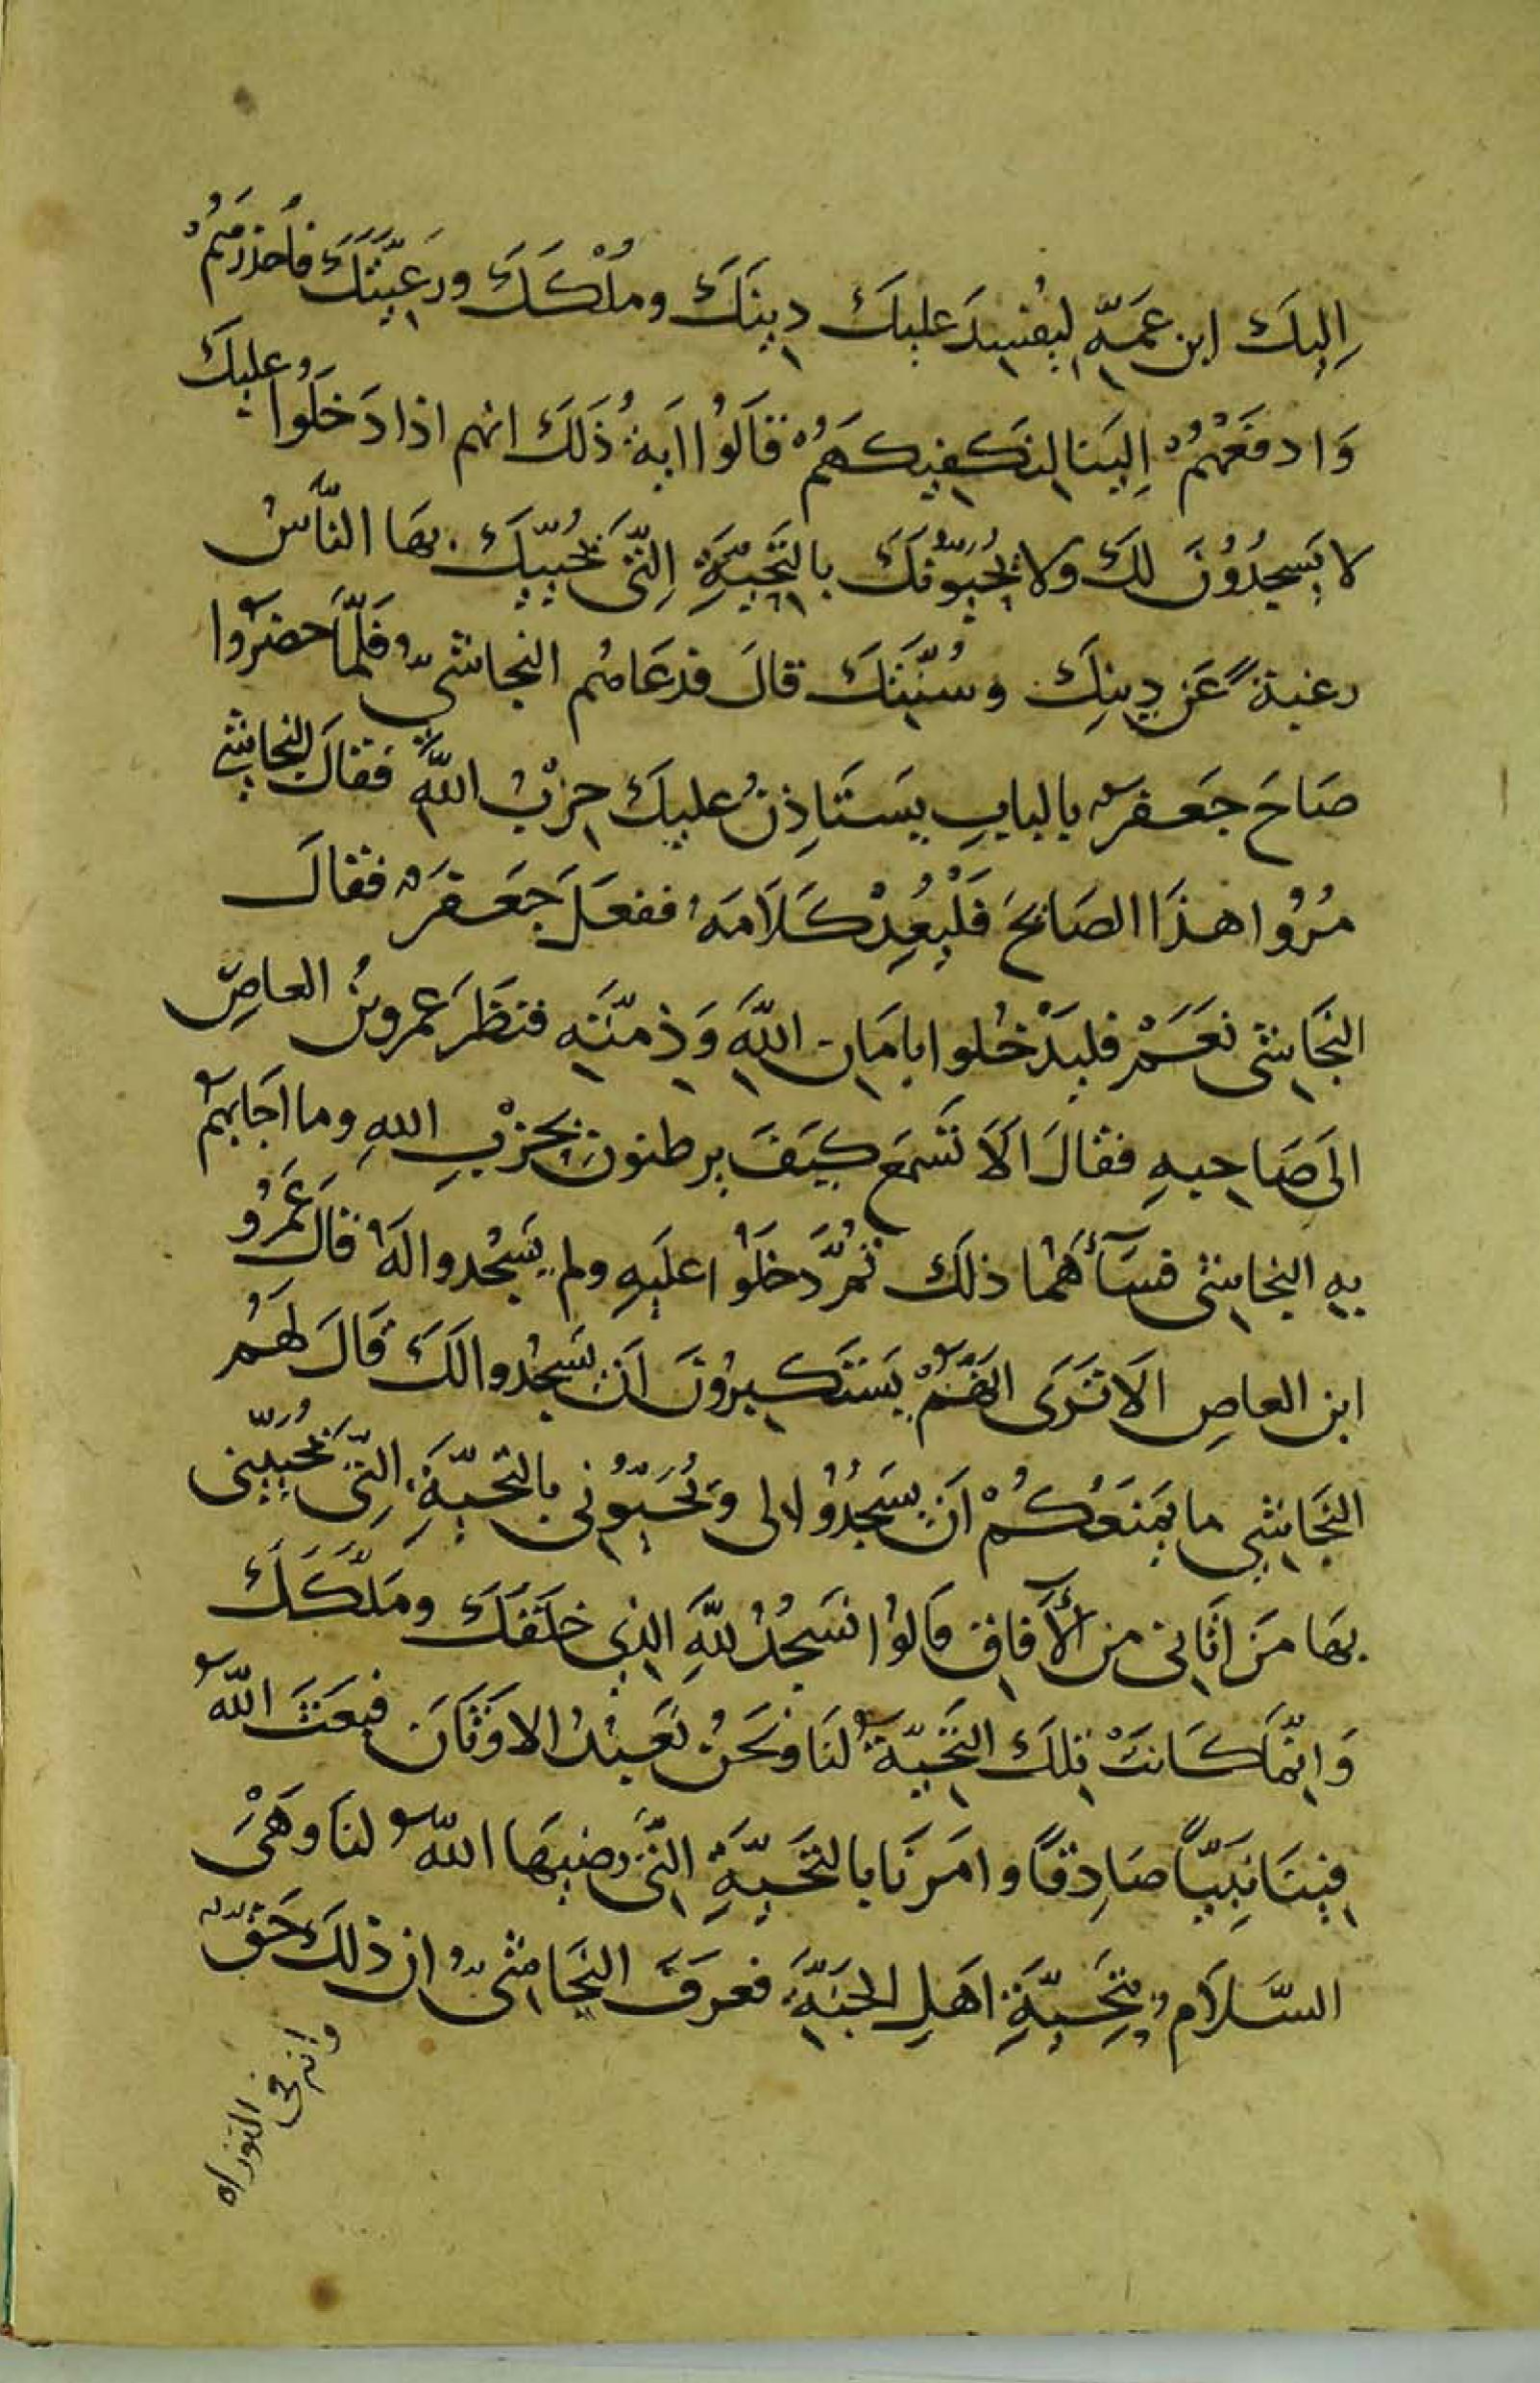 اِلیكَ ابن عَمِّهِ لیُفسِدَ علیكَ دِینَكَ ومُلْكَكَ ورَعِیَّتَكَ فاحذرهُمْ
وَادفَعْهُمْ اِلَیْنَا لِنَكفِیكَهُمْ قَالَوُا اٰیةُ ذَلَكَ انهم اذا دَخَلُوا علیكَ
لا یَسجُدُوُنَ لكَ ولا یُحَیُّونَكَ بِالتَحِیَّةِ اِلتّی یُحَیّیكَ بهَا النَّاسُ
رغبةً عَن دِینِكَ وسُنَّتِكَ قالَ فدعَاهُم النجاشیُّ فَلَمّا حضَرُوا
صَاحَ جَعفَرٌ بالبابِ یَستَاذِنُ علیكَ حِزْبُ اللَّهِ فَقَالَ النجاشی
مُرُوا هذَا الصَائحَ فَلْیُعِدْ كَلَامَهُ ففعَلَ جَعَفَرٌ فقالَ
النَجَاشی نعَمْ فلیَدْخُلوا بامَانِ اللَّهِ وَذِمَّتِهِ فنَظَرَ عمروبنُ العاصِ
الَی صَاحِبِهِ فقالَ الَا تَسْمَع كَیَفَ یرطنونَ بِحِزْبِ اللهِ وما اجَابَهُمْ
بِهِ النجاشی فسَآءَهُمَا ذلكَ ثُمَّ دَخَلَوُا علَیهِ ولم یَسْجُدوا لَهُ قالَ عَمْرُو
ابن العاصِ الَا تَرَی اَنَّهُمْ یَستَكبِرُونَ اَنْ یَسجُدوا لَكَ قَالَ لهَمُ
النَجَاشی ما یَمنَعُكُمْ اَن یَسَجُدُوُا لی وَیُحَیُّونی بِالتَحِیَّةِ اِلتّی یُحَیِّینی
بهَا مَن اتَانی من الاٰفاقِ قالوُا نَسَجُدُ لِلَّهِ الذی خَلَقَكَ ومَلَّكَكَ
وَانّمَا كَانَتْ تِلكَ التَحِیّةُ لَنَا ونَحَنُ نَعبُدُ الاوَثَانَ فبَعَثَ اللَّهُ
فِینَا نَبِیّاً صَادِقاً وامَرنَا بالتَحَیّةِ التّی رَضِیهَا اللَّهُ لنَا وَهْیَ
السَّلَامُ تَحِیَّةِ اهَلِ الجَنَّةِ فعرَفَ النَجَاشیُّ ان ذلكَ حَقٌّ
وانه فی التوراه